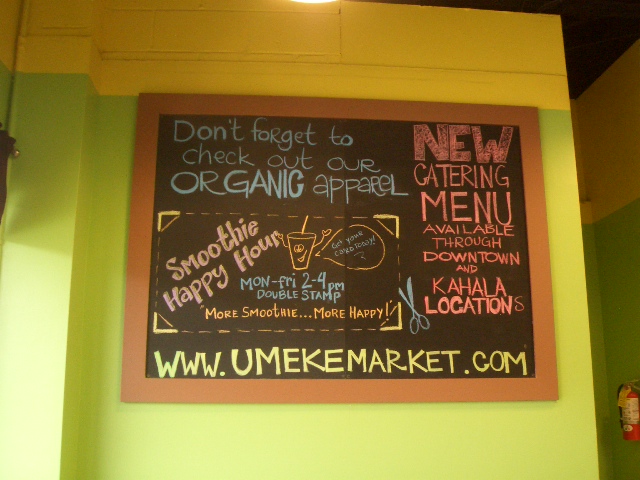 Don't forget to
check out our
ORGANIC apparel
Smoothie
Happy Hour
Get your
card today!
MON-fri 2-4pm
DOUBLE STAMP
"MORE SMOOTHIE...MORE HAPPY!"
NEW
CATERING
MENU
AVAILABLE
THROUGH
DOWNTOWN
AND
KAHALA
LOCATIONS
WWW.UMEKEMARKET.COM